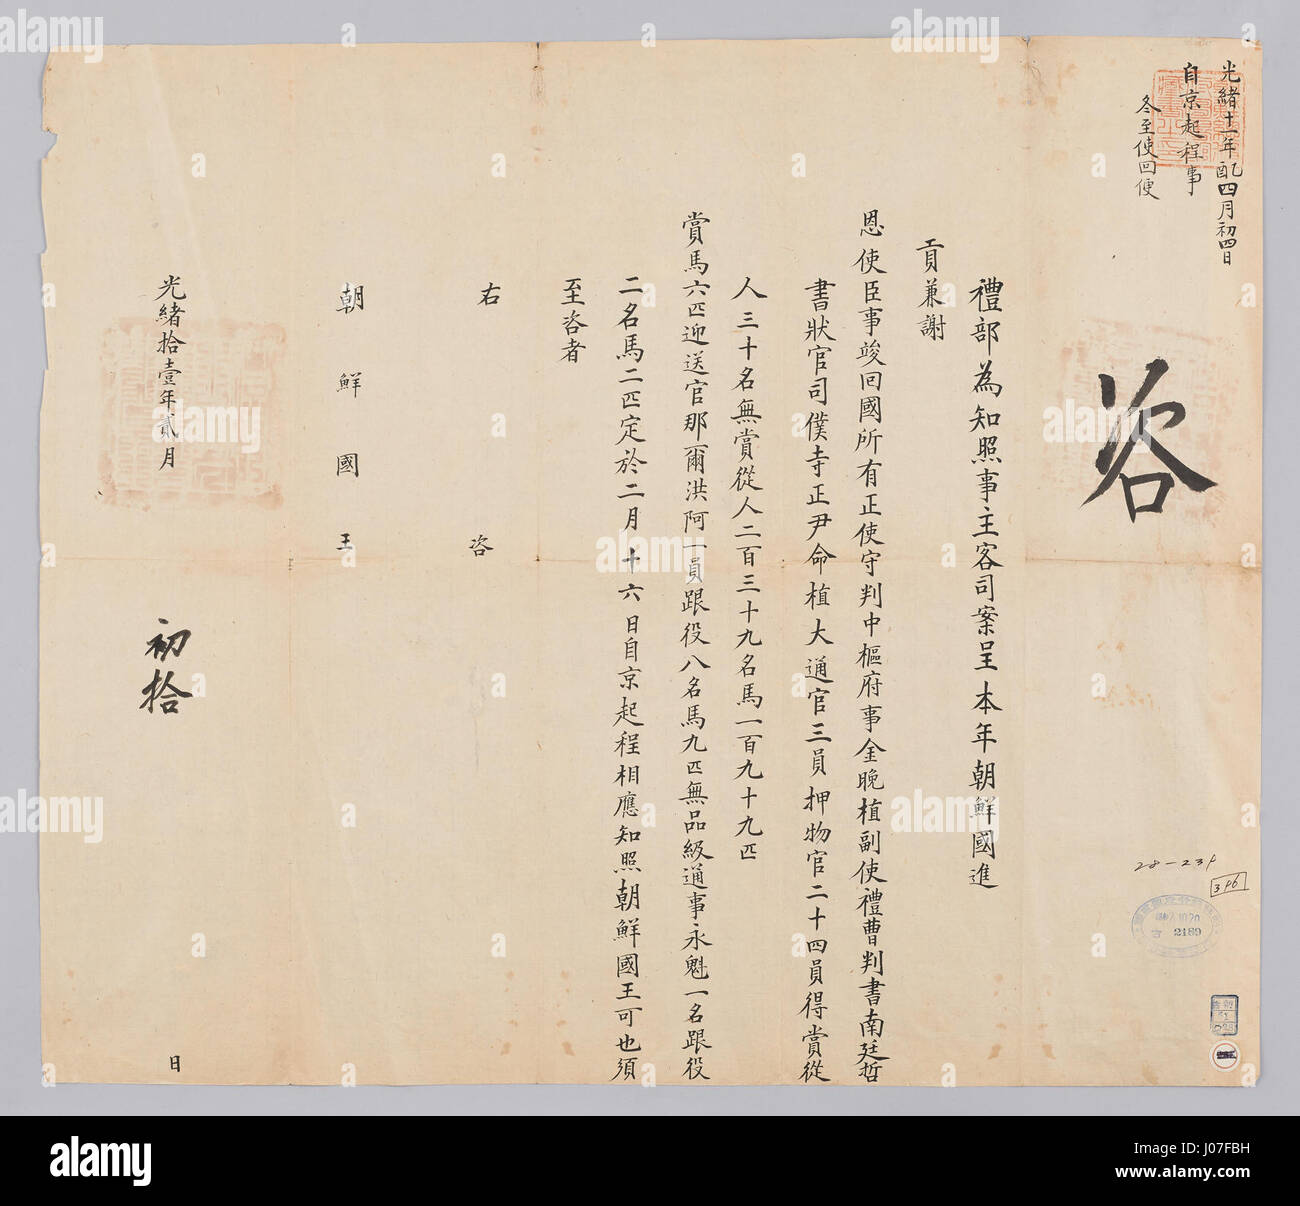 光緒十一年乙酉四月初四日
自京起程事
冬至使回便
咨
禮部為知照事主客司案呈本年朝鮮國進
貢兼謝
恩使臣事竣回國所有正使守判中樞府事金晚植副使禮曹判書南廷哲
書狀官司僕寺正尹命植大通官三員押物官二十四員得賞從
人三十名無賞從人二百三十九名馬一百九十九匹
賞馬六匹迎送官那爾洪阿一員跟役八名馬九匹無品級通事永魁一名跟役
二名馬二匹定於二月十六日自京起程相應知照朝鮮國王可也須
至咨者
右咨
朝鮮國王
光緒拾壹年貳月初拾日
28-239
396
2189
alamy
alamy
Image ID: J07FBH
www.alamy.com